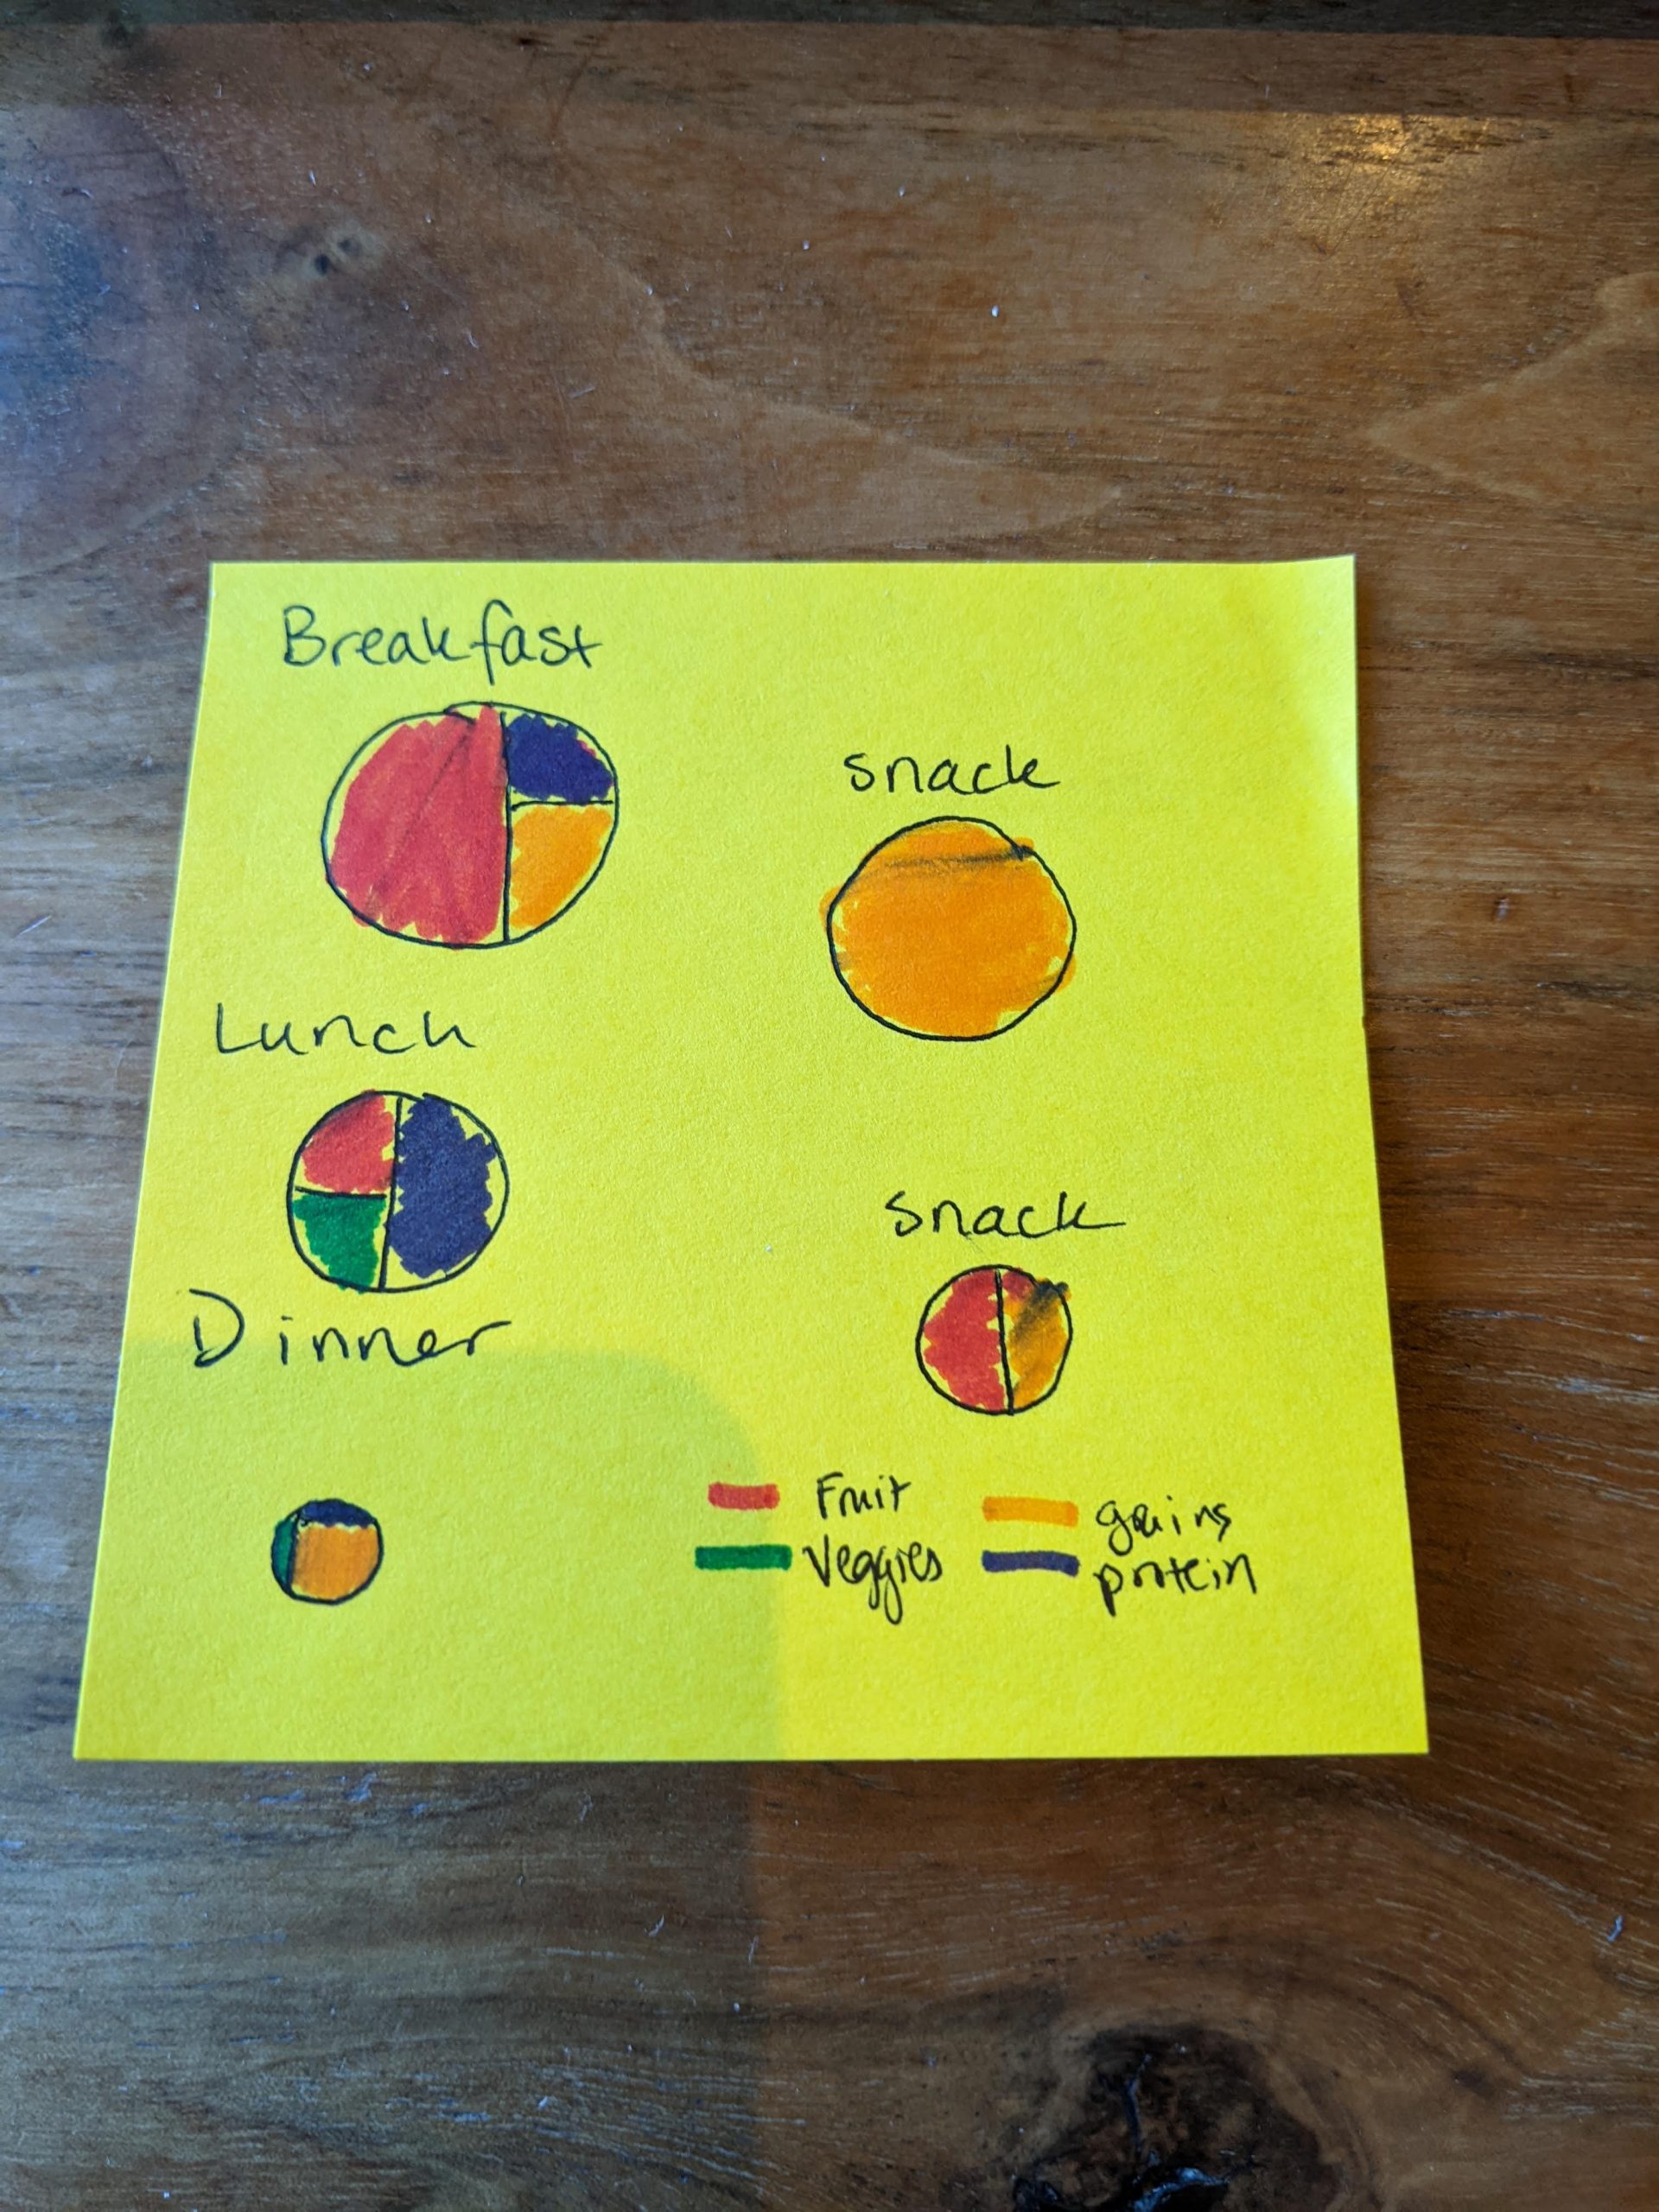 Breakfast
snack
Lunch
snack
Dinner
Fruit
grains
Veggies
protein